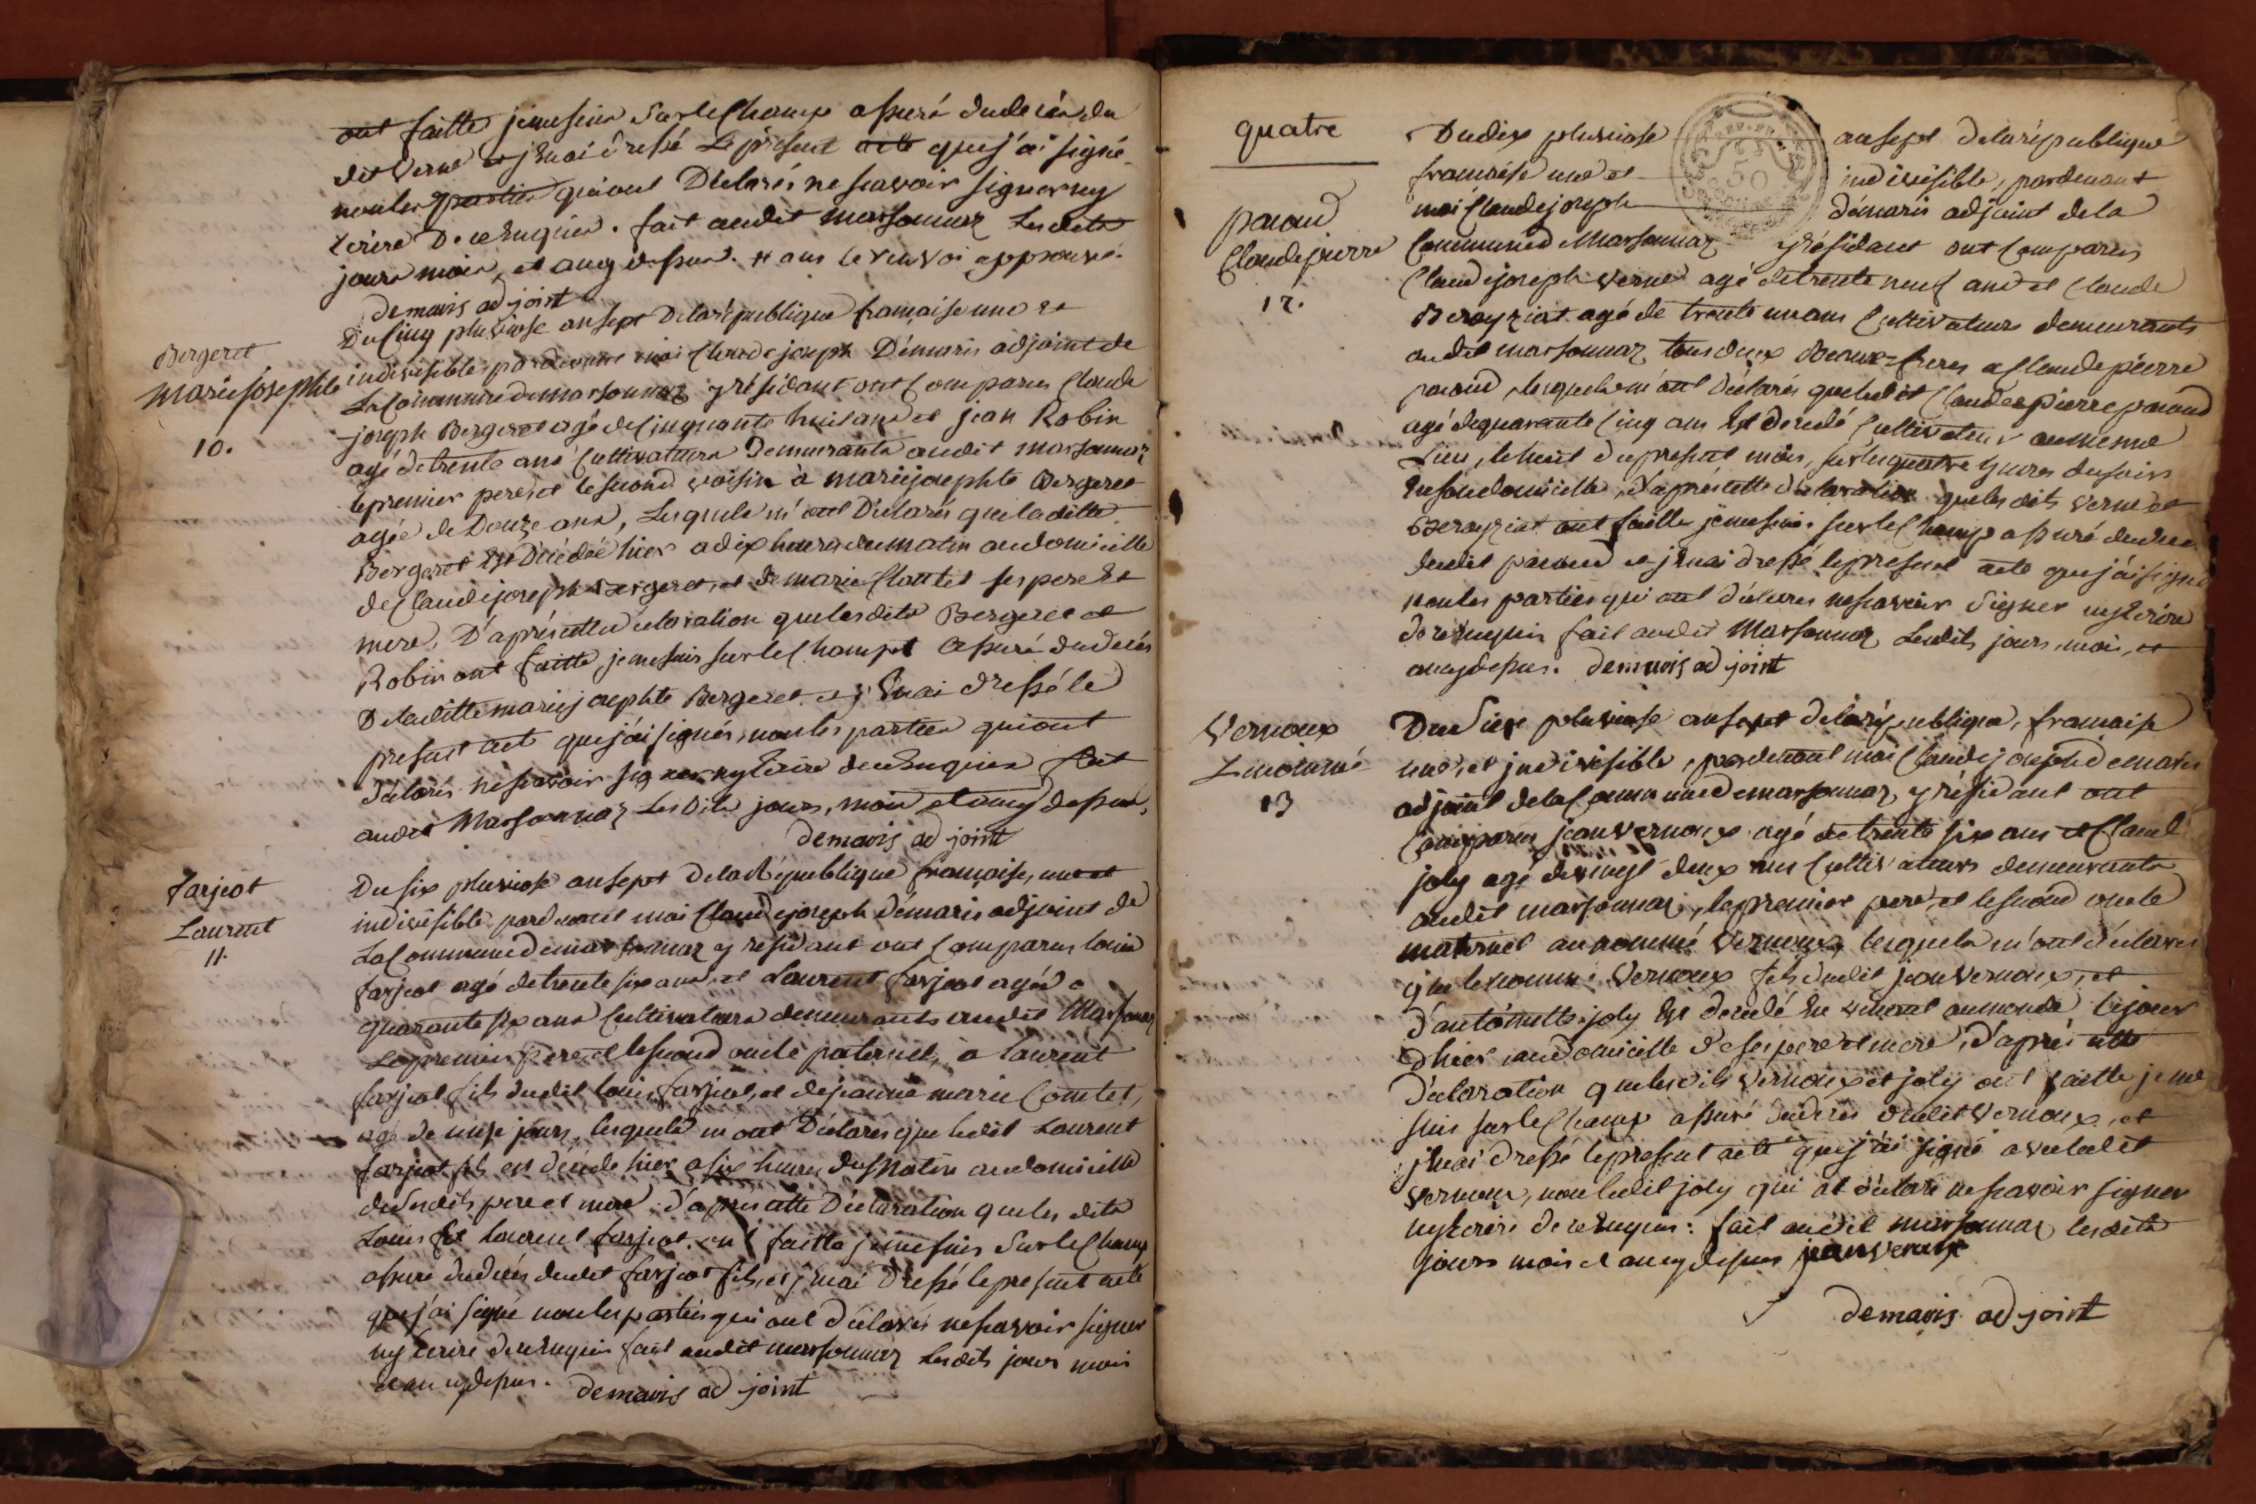 ont faitte, je me suis sur le champ assuré du decés du
dit Verne et j'en ai dressé Le présent acte que j'ai signé
non les parties qui ont Déclarés ne scavoir signer ny
Ecrire De ce Enquis. fait audit marsonnaz Les dits
jours mois, et an cy dessus. # ans le renvoi approuvé.
demaris adjoint
Bergeret
marie josephte
10.
Du cinq pluviose an sept De la république francaise une et
indivisible pardevant moi Claude joseph Démaris adjoint de
La Commune de marsonnaz y résidant ont Comparus Claude
joseph Bergeret agé de Cinquante huit ans et jean Robin
agé de trente ans Cultivateurs Demeurants audit marsonnaz
le premier pere et le second voisin à marie josephte Bergeret
agée de Douze ans, Lesquels m'ont Déclarés que la ditte
Bergeret Est Décédée hier a dix heures du matin au domicille
de Claude joseph Bergeret, et de marie Comtet ses pere Et
mere, D'après cette declaration que les dits Bergeret et
Robin ont faitte, je me suis sur le Champt assuré du decés
De la ditte marie josephte Bergeret et j'En ai dressé le
present acte que j'ai signé, non les parties qui ont
Déclarés ne scavoir signer ny Ecrire de ce Enquis fait
audit Marsonnaz Les Dits jours, mois et an cy dessus,
demaris adjoint
farjeot
Laurent
11.
Du six pluviose an sept De la République francoise, une et
indivisible pardevant moi Claude joseph Démaris adjoint de
La Commune de marsonnaz y résidant ont Comparus Louis
farjeot agé de trente six ans, et Laurent farjeot agé de
quarante six ans Cultivateurs demeurants audit Marsonnaz
Le premier pere et le second oncle paternel, a laurent
farjeot fils dudit Louis farjeot, et de jeanne marie Comtet,
agé de jours, lesquels m'ont Déclarés que ledit Laurent
farjeot fils est décédé hier a six heures du Matin au domicille
de sesdits pere et mere, d'apres cette Déclaration que les dits
Louis Et laurent farjeot ont faitte je me suis sur le Champ
assuré du decés dudit farjeot fils, et j'en ai Dressé le present acte
que j'ai signé non les parties qui ont déclarés ne scavoir signer
ny Ecrire de ce Enquis fait audit marsonnaz Les dits jours mois
et an cy dessus. demaris adjoint
quatre
paraud
Claude pierre
12.
Du dix pluviose an sept de la république
francoise une et indivisible, pardevant
moi Claude joseph démaris adjoint de la
Commune de Marsonnaz y résidant ont Comparus
Claude joseph Verne agé de trente neuf ans et Claude
Berayziat agé de trente un ans Cultivateurs demeurants
audit marsonnaz tous deux Beaux-freres a Claude pierre
paraud, lesquels m'ont déclarés que ledit Claude pierre paraud
agé de quarante Cinq ans Est decedé Cultivateur au meme
Lieu, le huit du present mois, sur les quatre heures du soir
En son domicille, d'après cette declaration que les dits Verne et
Berayziat ont faitte je me suis sur le Champ assuré du decés
dudit paraud et j'en ai dressé le present acte que j'ai signé
non les parties qui ont déclarés ne scavoir signer ny Ecrire
de ce enquis fait audit Marsonnaz Les dits jours, mois, et
an cy dessus. demaris adjoint
Vernoux
L'innommé
13
Du dix pluviose an sept de la république, francaise
une, et indivisible, pardevant moi Claude joseph demaris
adjoint de la Commune de marsonnaz, y résidant ont
Comparus jean Vernoux agé de trente six ans et Claude
joly agé de vingt deux ans Cultivateurs demeurants
audit marsonnaz, le premier pere, et le second oncle
maternel au nommé Vernoux, lesquels m'ont déclarés
que le nommé Vernoux fils dudit jean Vernoux, et
d'antoinette joly Est decedé En venant au monde le jour
d'hier au domicille de ses pere et mere, d'après cette
declaration que les dits Vernoux et joly ont faitte je me
suis sur le Champ assuré du decés dudit Vernoux, et
j'en ai dressé le present acte que j'ai signé avec ledit
Vernoux, non ledit joly qui a déclaré ne scavoir signer
ny Ecrire de ce Enquis: fait audit marsonnaz les dits
jours mois et an cy dessus jean vernoux
demaris adjoint